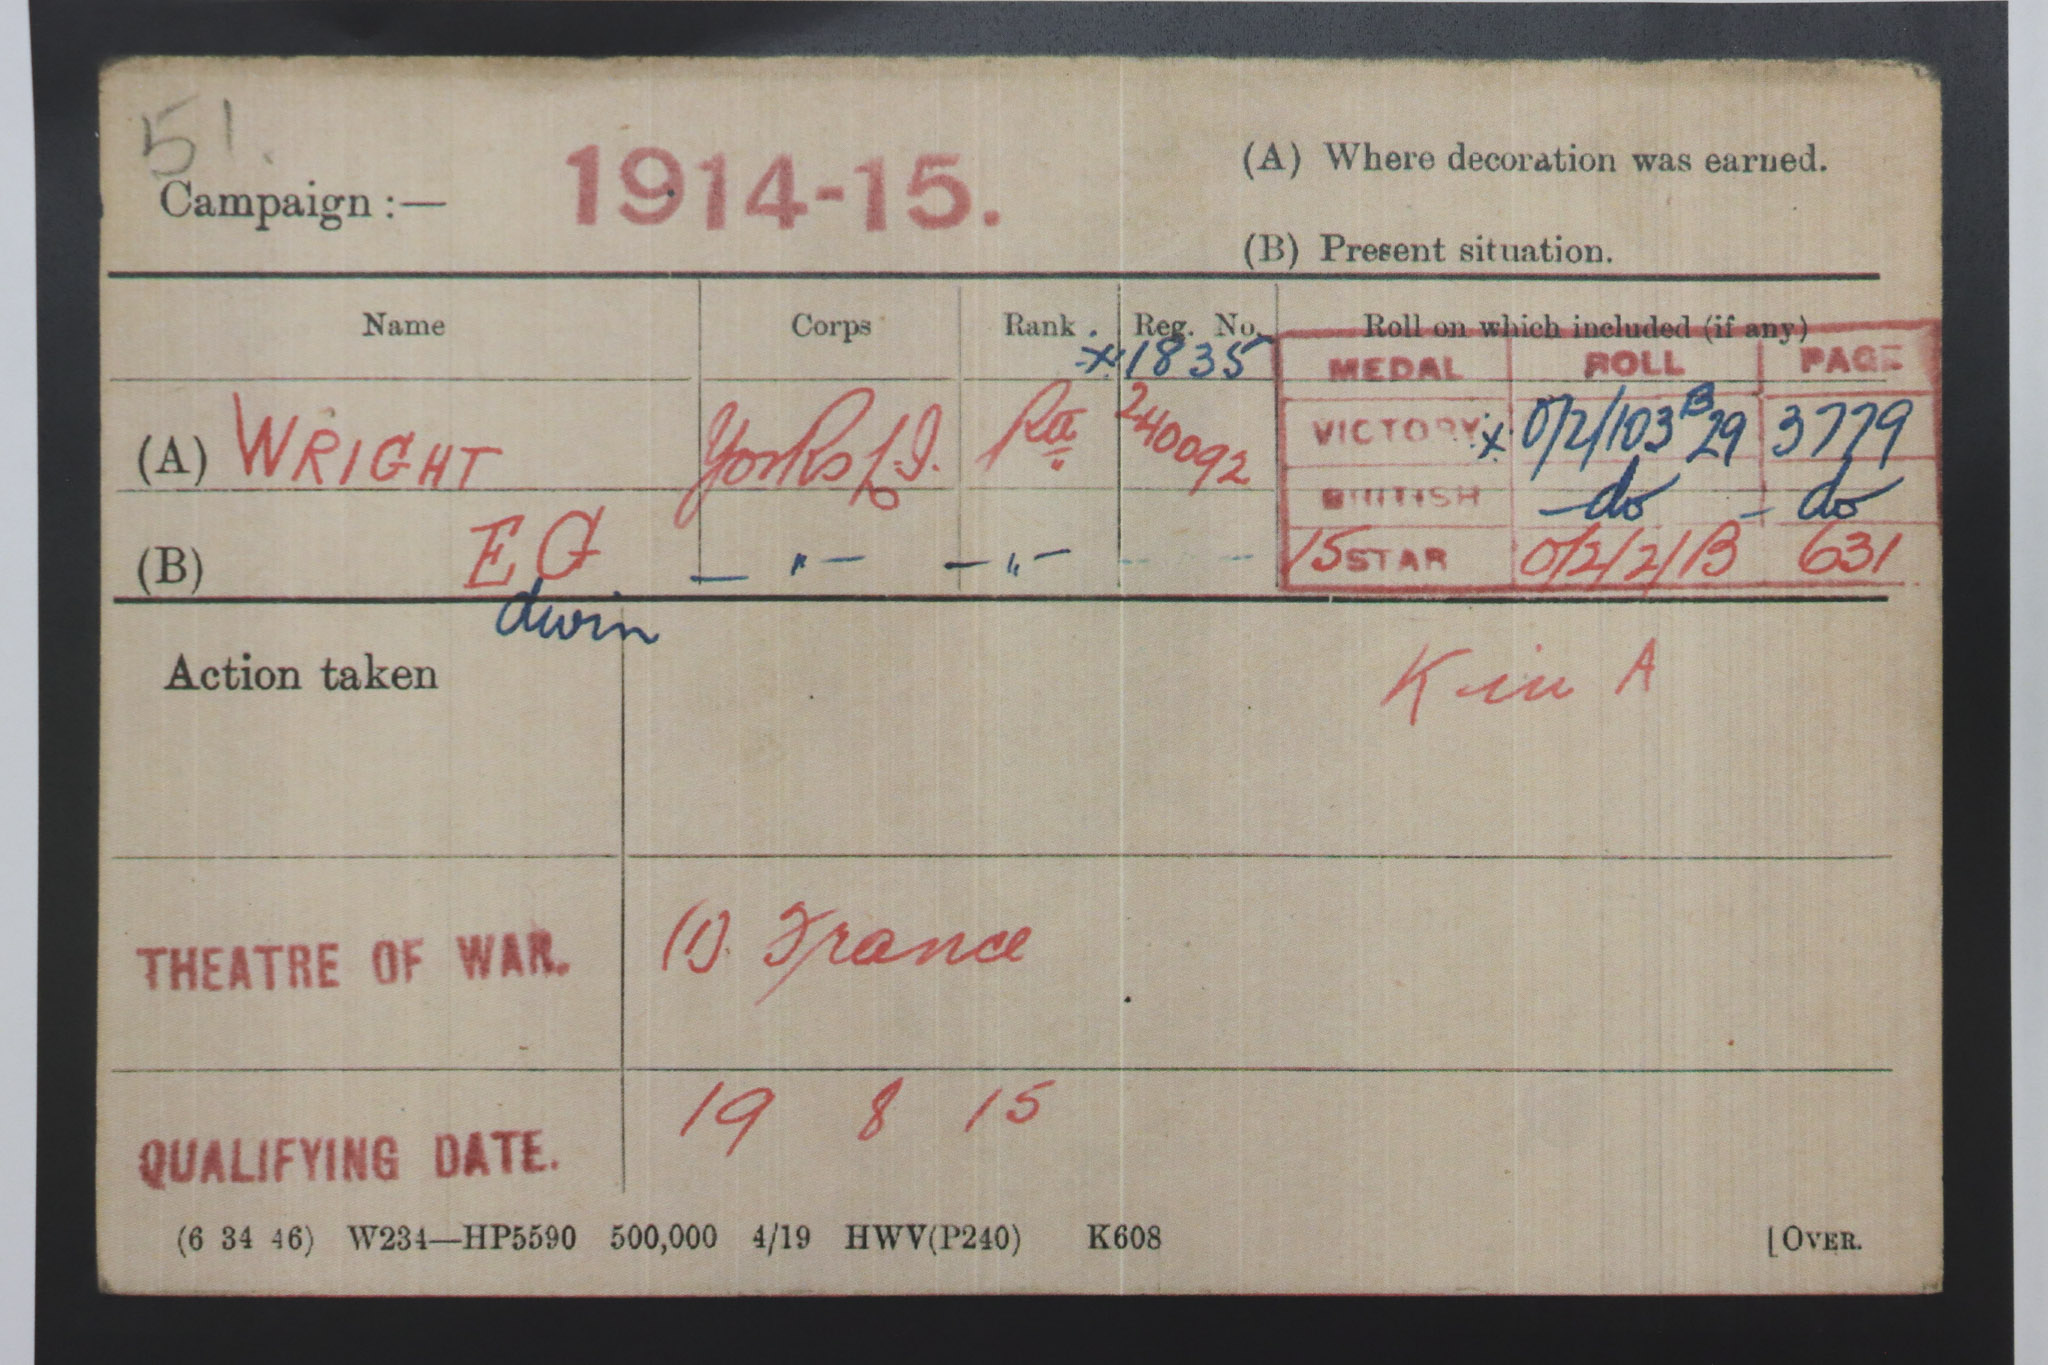 51.
Campaign :— 1914-15.
(A) Where decoration was earned.
(B) Present situation.
Name Corps Rank Reg. No. Roll on which included (if any)
x 1835 MEDAL ROLL PAGE
(A) WRIGHT Yorks L.I. Pte 240092 VICTORY x O/2/103 B 29 3779
BRITISH — do — do
(B) E G — " — — " — 15 STAR O/2/2/B 631
dwin
Action taken
K in A
THEATRE OF WAR. (1). France
QUALIFYING DATE. 19 8 15
(6 34 46) W234—HP5590 500,000 4/19 HWV(P240) K608 [OVER.